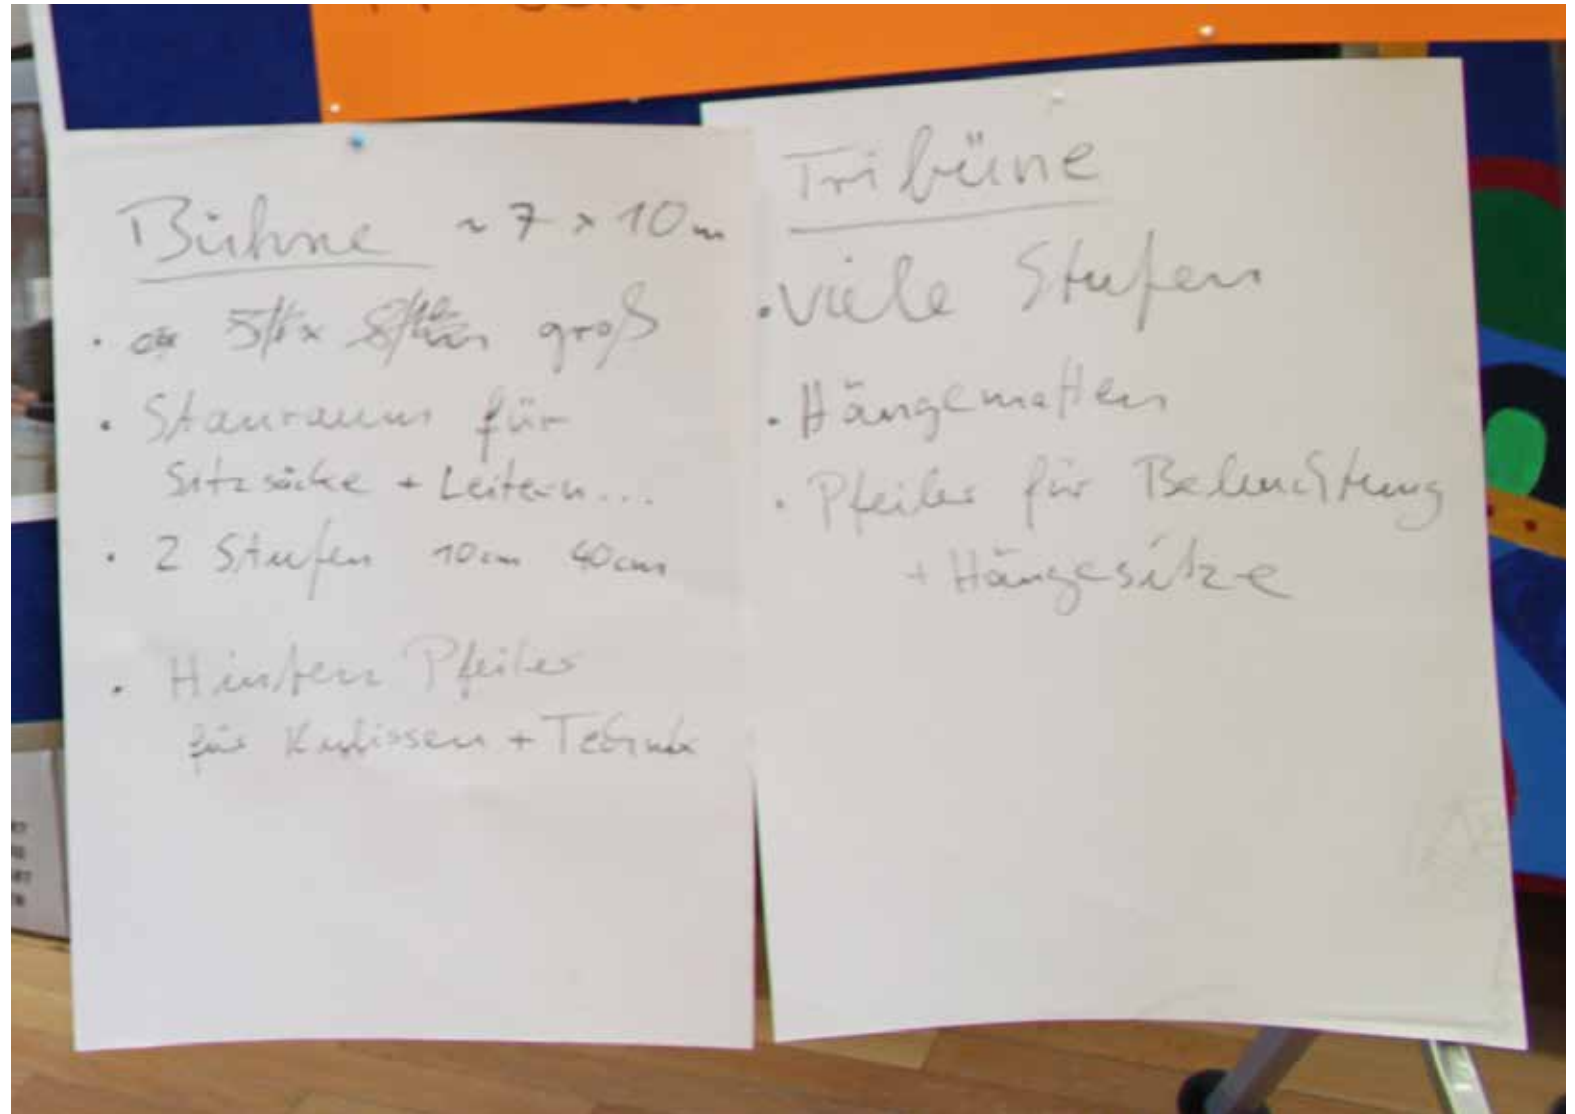 Bühne ~ 7 x 10m
• ca 5/6 x 8/10m groß
• Stauraum für
Sitzsäcke + Leitern...
• 2 Stufen 10cm 40cm
• Hinten Pfeiler
für Kulissen + Technik
Tribüne
• Viele Stufen
• Hängematten
• Pfeiler für Beleuchtung
+ Hängesitze